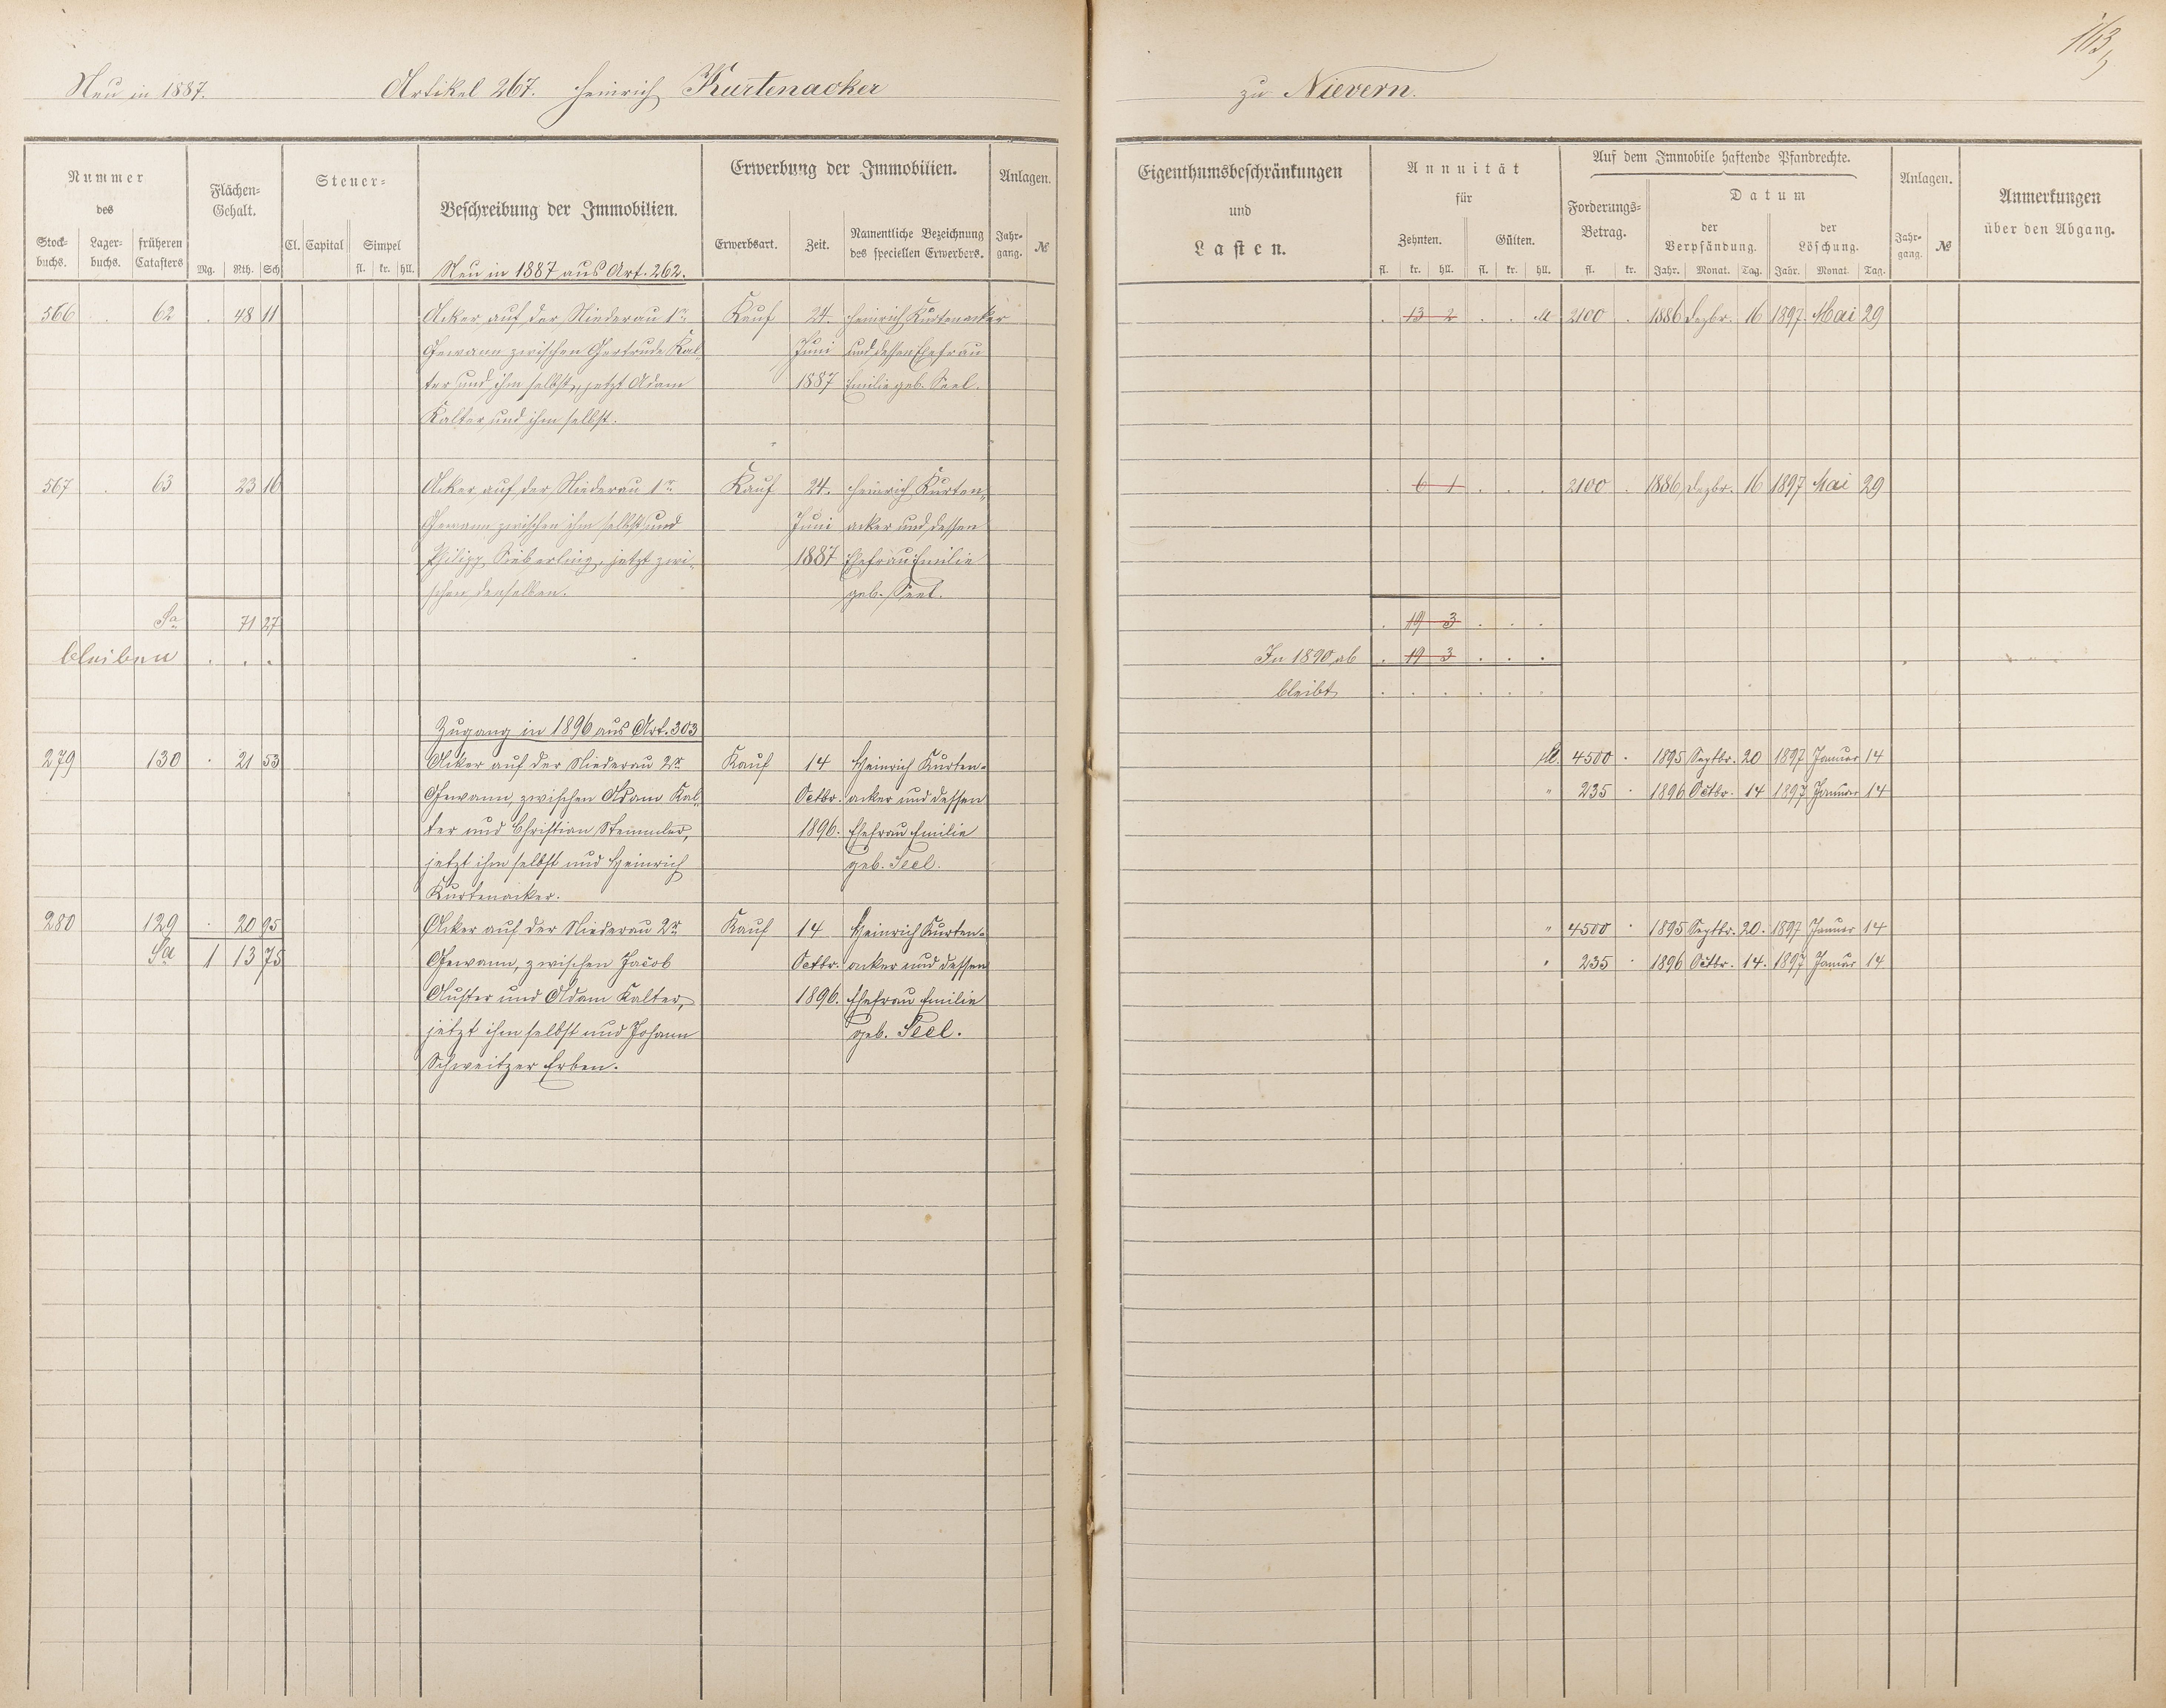 163
Neu in 1887. Artikel 267. Heinrich Kurtenacker zu Nievern.
Nummer des
Stockbuchs. Lagerbuchs. früheren Catasters
Flächen-Gehalt.
Mg. Rth. Sch.
Steuer-
Cl. Capital Simpel
fl. kr. hll.
Beschreibung der Immobilien.
Erwerbung der Immobilien.
Erwerbsart. Zeit. Namentliche Bezeichnung des speciellen Erwerbers.
Anlagen.
Jahrgang. №
Eigenthumsbeschränkungen und Lasten.
Annuität für
Zehnten. Gülten.
fl. kr. hll. fl. kr. hll.
Auf dem Immobile haftende Pfandrechte.
Forderungs-Betrag.
fl. kr.
Datum
der Verpfändung. der Löschung.
Jahr. Monat. Tag. Jahr. Monat. Tag.
Anlagen.
Jahrgang. №
Anmerkungen über den Abgang.
Neu in 1887 aus Art. 262.
566 . 62 . 48 11 Acker auf der Niederau 1r Kauf 24. Heinrich Kurtenacker . 13 2 . . M 2100 . 1886 Dezbr. 16 1897. Mai 29
Gewann zwischen Gertrude Kal- Juni und dessen Ehefrau
ter und ihm selbst, jetzt Adam 1887 Emilie geb. Seel.
Kalter und ihm selbst.
567 . 63 23 16 Acker auf der Niederau 1r Kauf 24. Heinrich Kurten- . 6 1 . . . 2100 . 1886 Dezbr. 16 1897 Mai 29
Gewann zwischen ihm selbst und Juni acker und dessen
Philipp Sieberling, jetzt zwi- 1887 Ehefrau Emilie
schen denselben. geb. Seel.
Sa 71 27 . 19 3 . . .
bleiben . . . In 1890 ab . 19 3 . . .
bleibt . . . . . .
Zugang in 1896 aus Art. 303
279 130 . 21 53 Acker auf der Niederau 2r Kauf 14 Heinrich Kurten- M. 4500 . 1895 Septbr. 20 1897 Januar 14
Gewann, zwischen Adam Kal- Octbr. acker und dessen " 235 . 1896 Octbr. 14 1897 Januar 14
ter und Christian Stemmler, 1896. Ehefrau Emilie
jetzt ihm selbst und Heinrich geb. Seel.
Kurtenacker.
280 129 . 20 95 Acker auf der Niederau 2r Kauf 14 Heinrich Kurten- " 4500 . 1895 Septbr. 20. 1897 Januar 14
Sa 1 13 75 Gewann, zwischen Jacob Octbr. acker und dessen " 235 . 1896 Octbr. 14. 1897 Januar 14
Auster und Adam Kalter, 1896. Ehefrau Emilie
jetzt ihm selbst und Johann geb. Seel.
Schweitzer Erben.